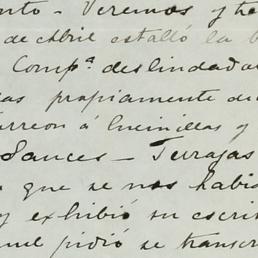 nto - Veremos y te
de Abril estalló la b
Compª deslindado
as propiamente di
orreon á Encinillas y
Sauces - Terrazas
o que se nos habia
y exhibió su escri
nuel pidió se transcr